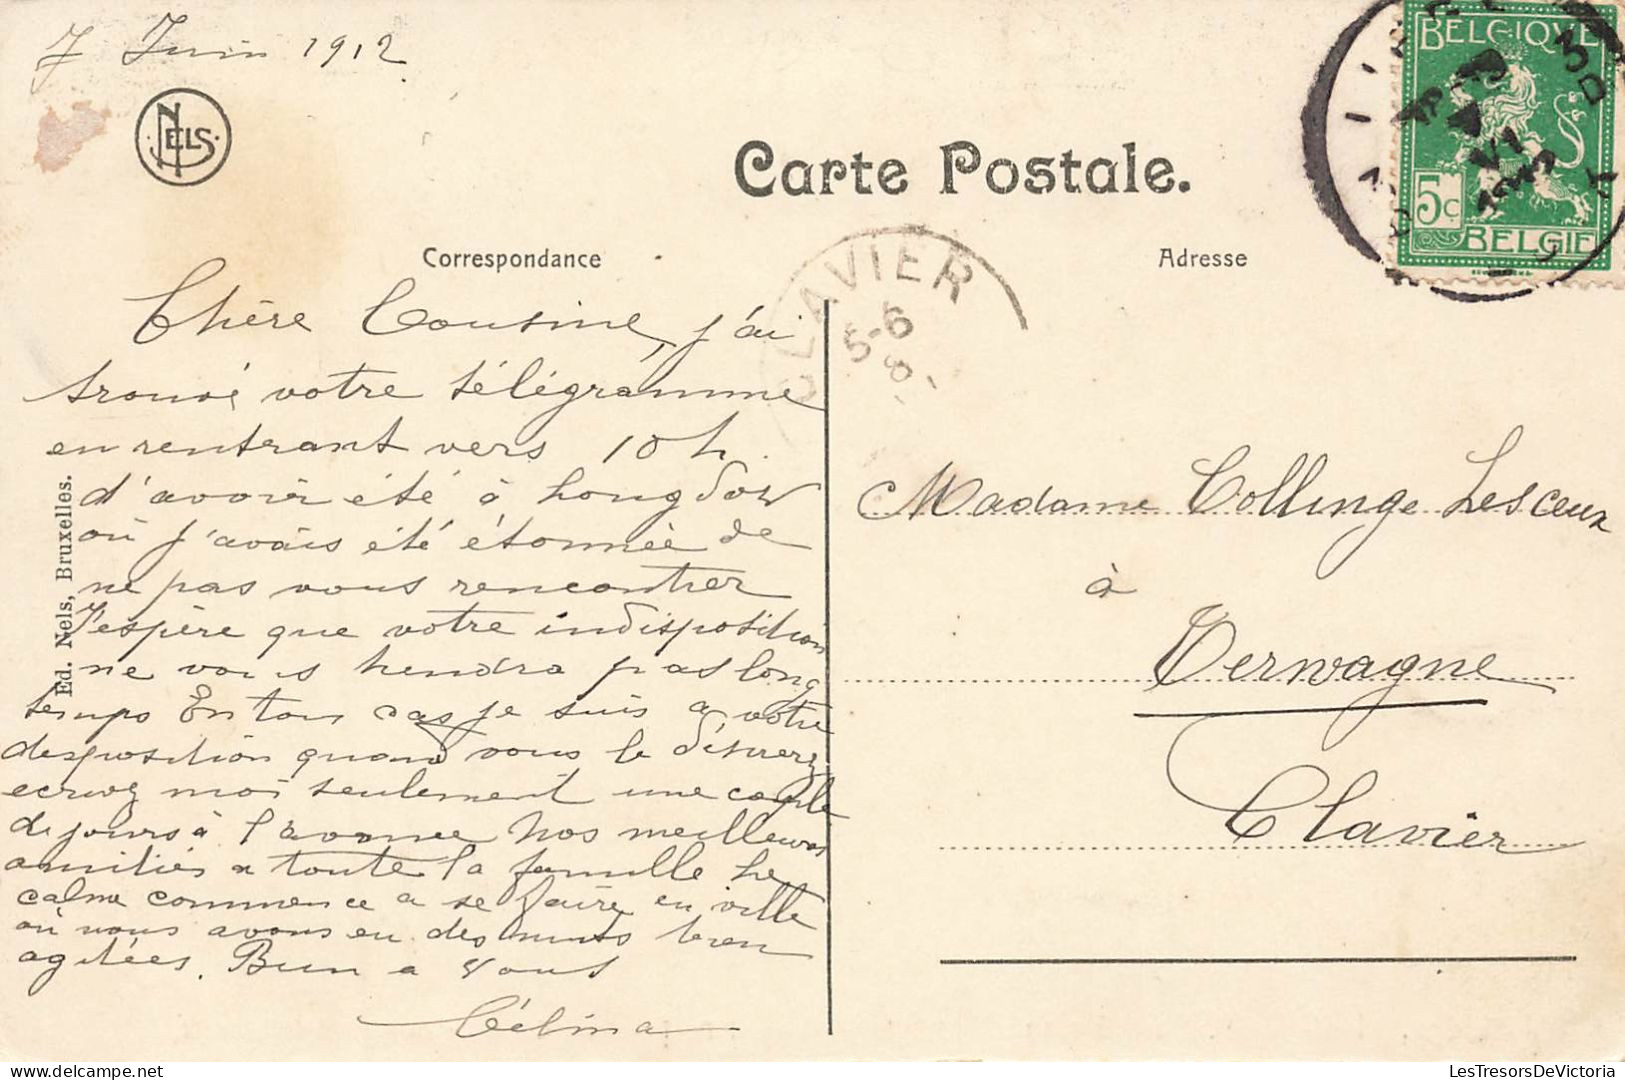 7 Juin 1912
NELS
BELGIQUE
5c
BELGIË
Carte Postale.
Correspondance
Adresse
CLAVIER
5-6
8
Chère Cousine, j'ai
trouvé votre télégramme
en rentrant vers 10 h.
d'avoir été à longdoz
où j'avais été étonnée de
ne pas vous rencontrer
J'espère que votre indisposition
ne vous tiendra pas long
temps En tous cas je suis a votre
desposition quand vous le désirerez
ecrivez moi seulement une couple
de jours à l'avance Nos meilleures
amitiés a toute la famille Le
calme commence a se faire en ville
où nous avons eu des nuits bien
agitées. Bien a vous
Célina
Ed. Nels, Bruxelles.
Madame Collinge Lesceux
à
Terwagne
Clavier
LesTresorsDeVictoria